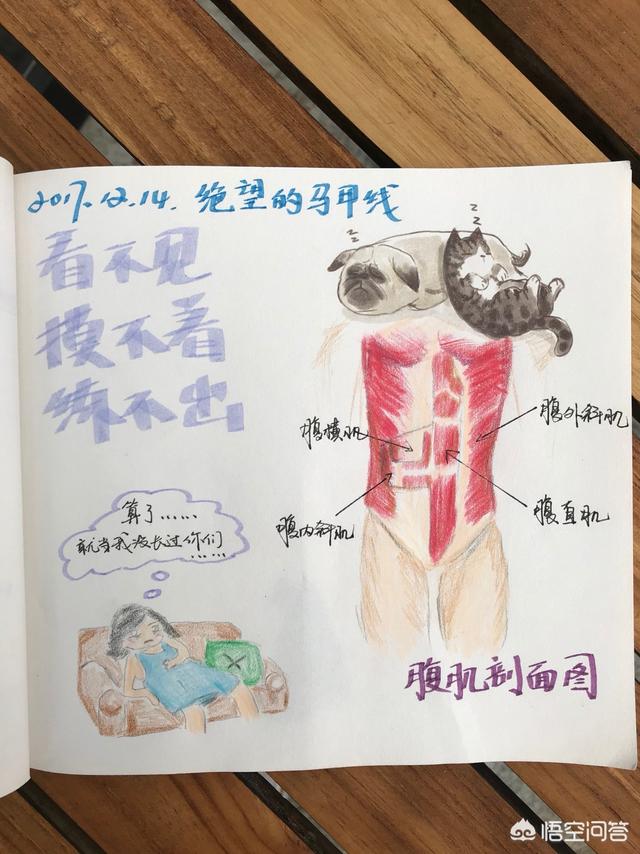 2017.12.14. 绝望的马甲线
看不见
摸不着
练不出
z z
z z z
腹横肌
腹外斜肌
腹内斜肌
腹直肌
算了……
就当我没长过你们……
腹肌剖面图
悟空问答